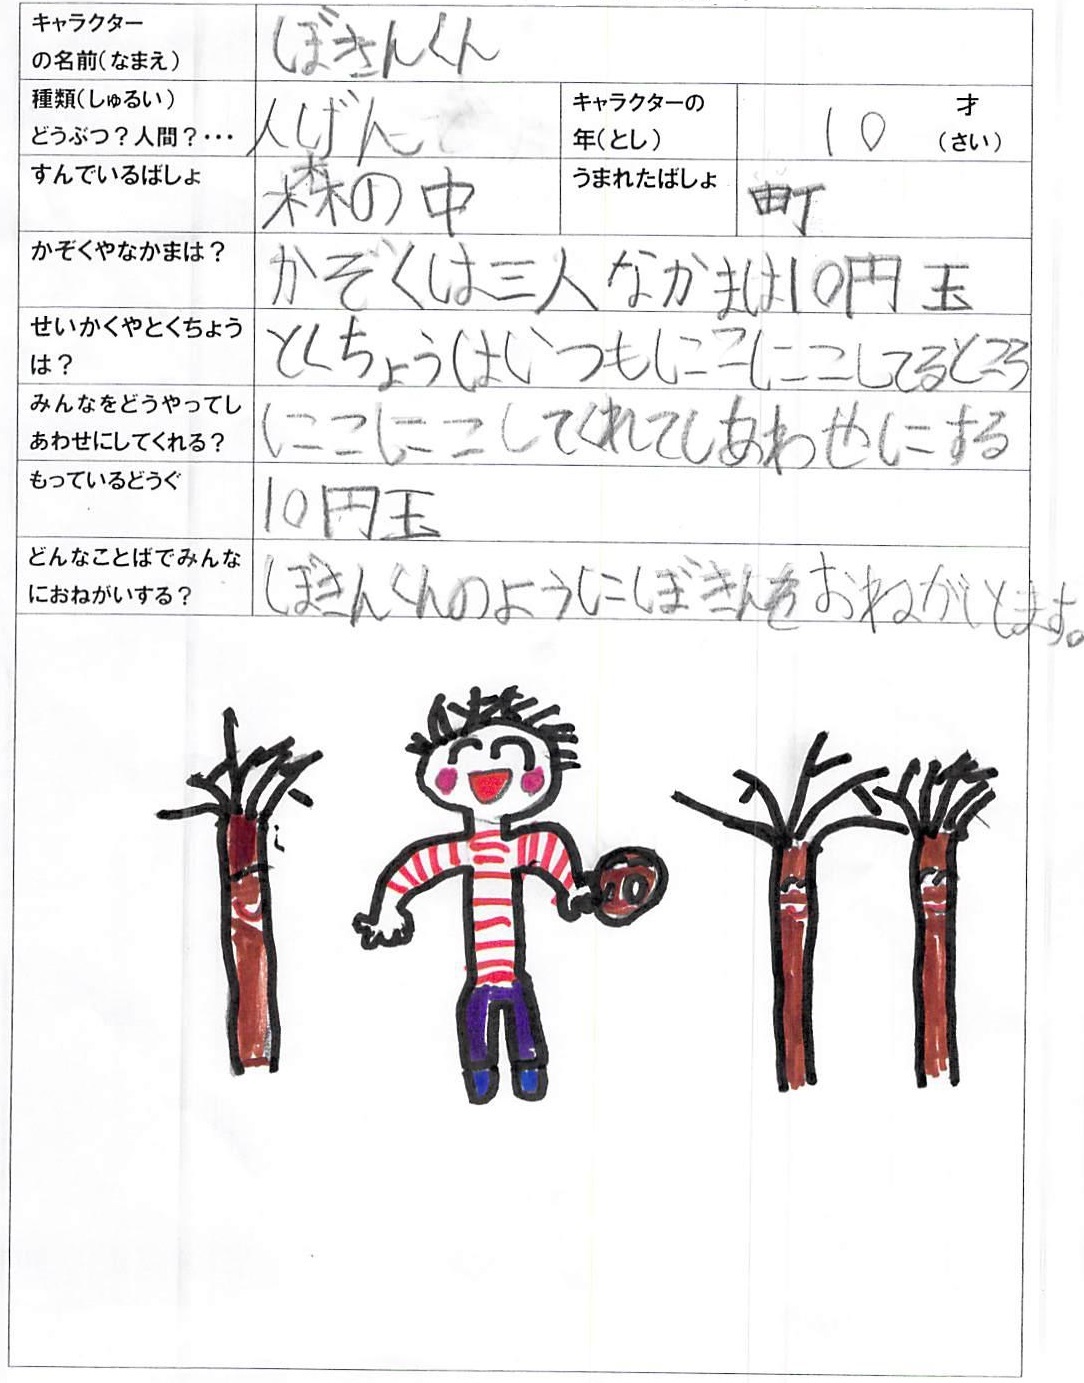 キャラクター
の名前(なまえ)
ぼきんくん
種類(しゅるい)
どうぶつ？人間？・・・
人げん
キャラクターの
年(とし)
10
才
(さい)
すんでいるばしょ
森の中
うまれたばしょ
町
かぞくやなかまは？
かぞくは三人なかまは10円玉
せいかくやとくちょう
は？
とくちょうはいつもにこにこしてるところ
みんなをどうやってし
あわせにしてくれる？
にこにこしてくれてしあわせにする
もっているどうぐ
10円玉
どんなことばでみんな
におねがいする？
ぼきんくんのようにぼきんをおねがいします。
10